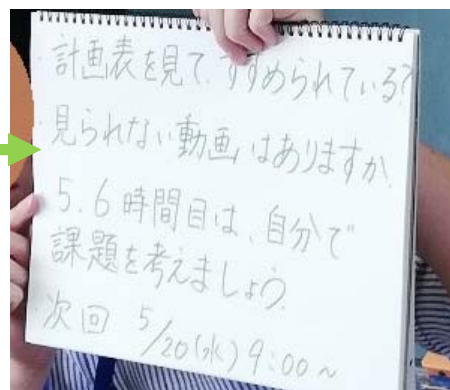 ・計画表を見て、すすめられている?
・見られない動画はありますか。
・5.6時間目は、自分で
課題を考えましょう。
・次回 5/20(水) 9:00~